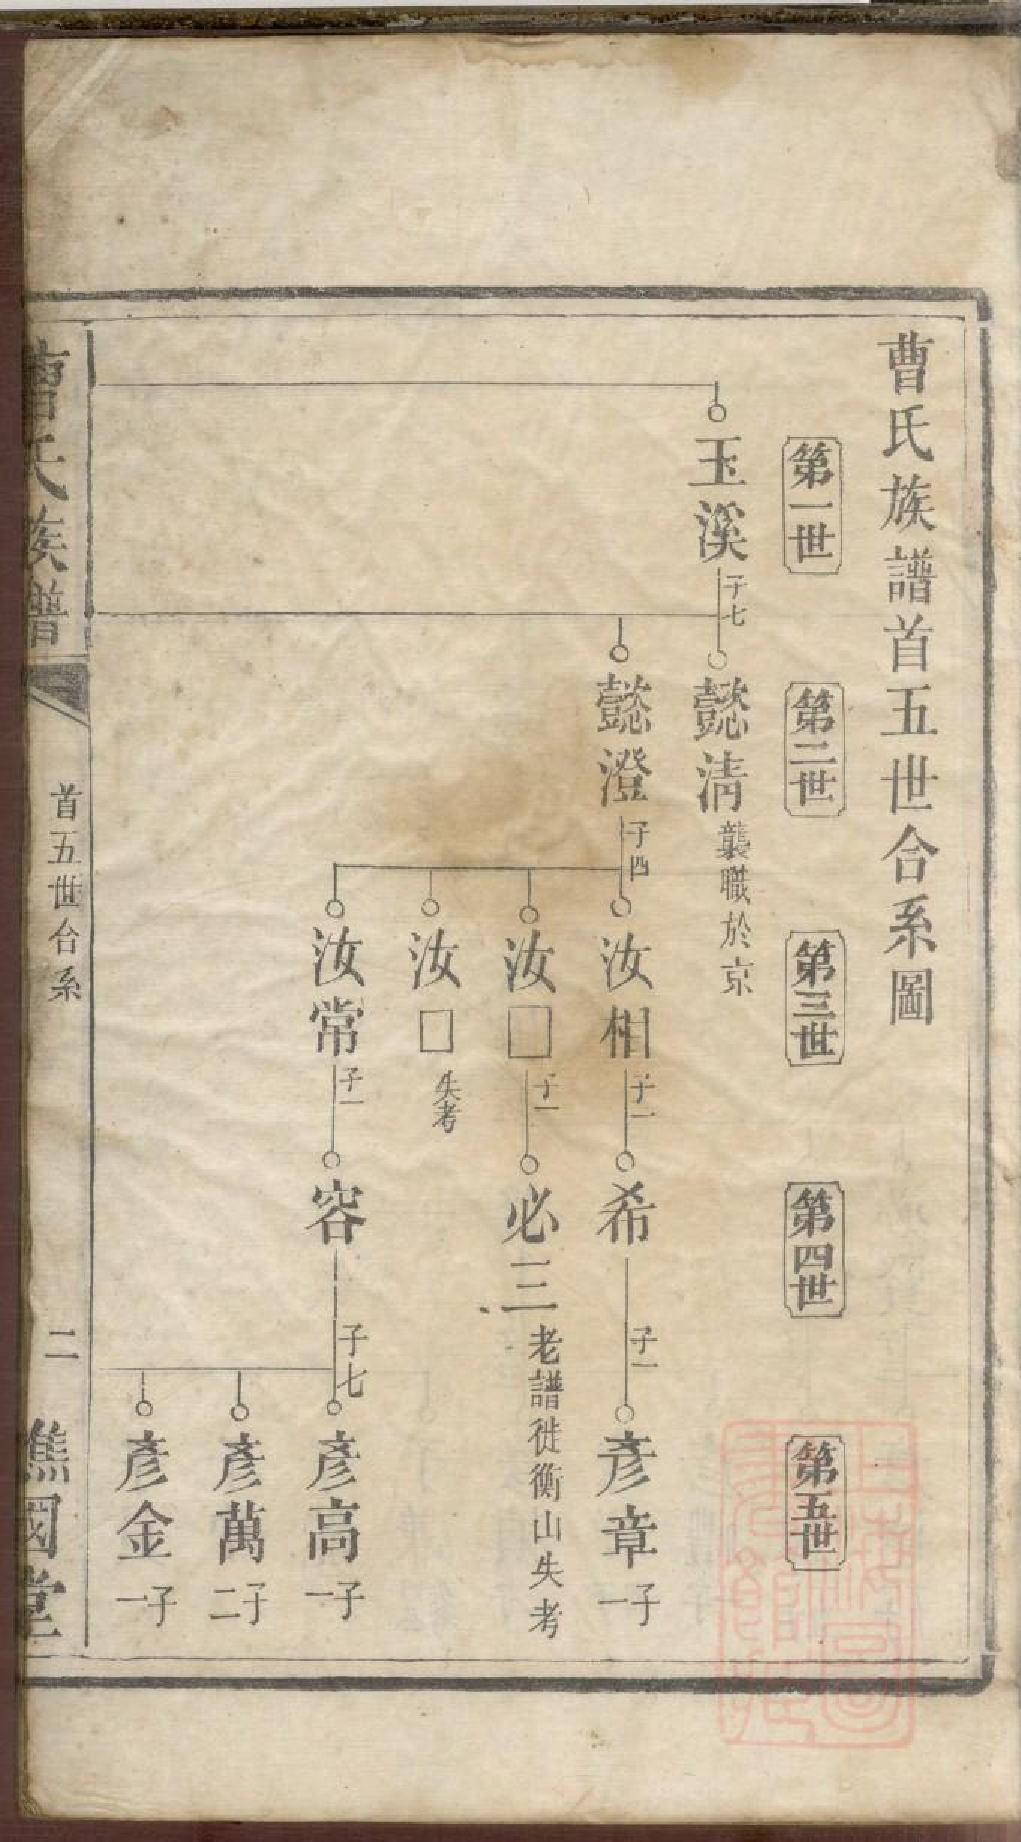 曹氏族譜首五世合系圖
第一世
第二世
第三世
第四世
第五世
玉溪
子七
懿清
襲職於京
懿澄
子四
汝相
子一
希
子一
彥章
子一
汝□
子一
必三
老譜徙衡山失考
汝□
失考
汝常
子一
容
子七
彥高
子一
彥萬
子二
彥金
子一
曹氏族譜
首五世合系
二
譙國堂